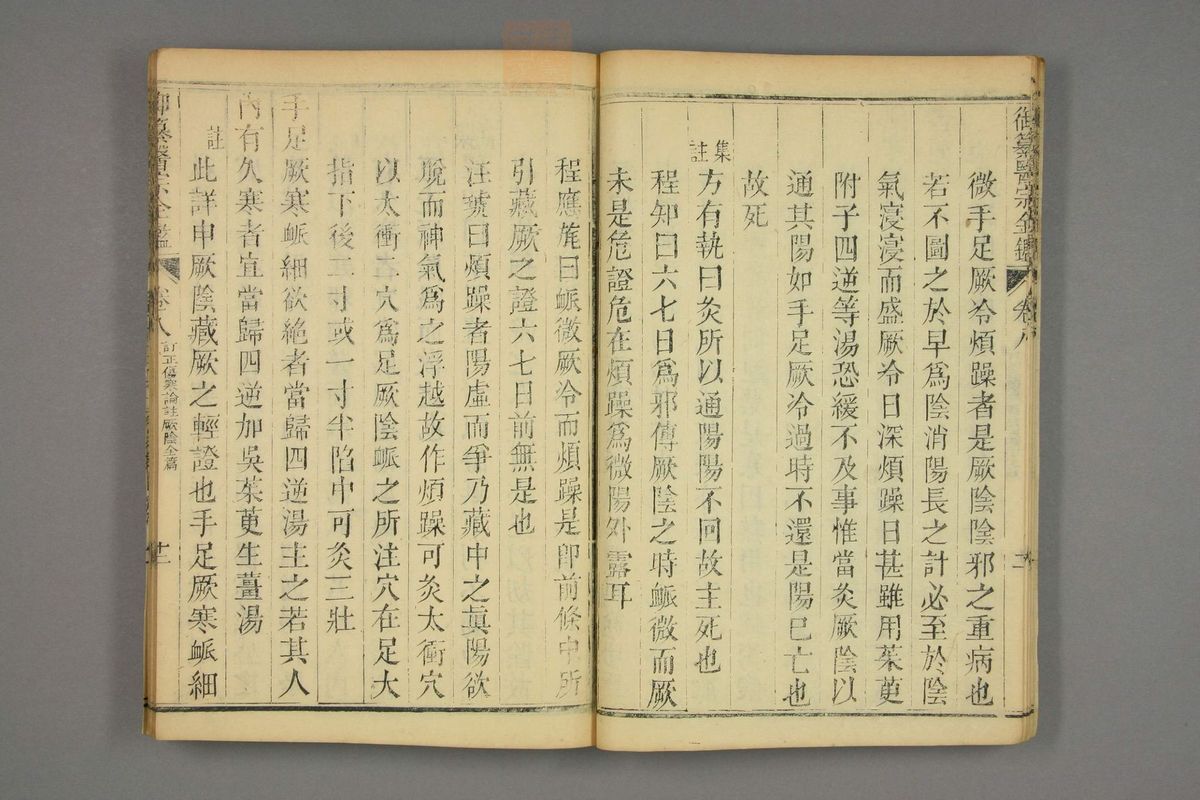 御纂醫宗金鑑 卷八
微手足厥冷煩躁者是厥陰陰邪之重病也
若不圖之於早爲陰消陽長之計必至於陰
氣寖寖而盛厥冷日深煩躁日甚雖用茱萸
附子四逆等湯恐緩不及事惟當灸厥陰以
通其陽如手足厥冷過時不還是陽已亡也
故死
集註
方有執曰灸所以通陽陽不回故主死也
程知曰六七日爲邪傳厥陰之時脈微而厥
未是危證危在煩躁爲微陽外露耳
程應旄曰脈微厥冷而煩躁是卽前條中所
引藏厥之證六七日前無是也
汪琥曰煩躁者陽虛而爭乃藏中之眞陽欲
脫而神氣爲之浮越故作煩躁可灸太衝穴
以太衝二穴爲足厥陰脈之所注穴在足大
指下後二寸或一寸半陷中可灸三壯
手足厥寒脈細欲絶者當歸四逆湯主之若其人
內有久寒者宜當歸四逆加吳茱萸生薑湯
註
此詳申厥陰藏厥之輕證也手足厥寒脈細
御纂醫宗金鑑 卷八 訂正傷寒論註厥陰全篇